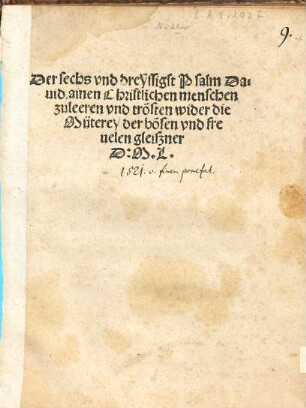 9.
Der sechs vnd dreyssigst Psalm Da-
uid. ainen Christlichen menschen
zuleeren vnd trösten wider die
Müterey der bösen vnd fre
uelen gleißner
D: M. L.
1521. v. finem praefat.